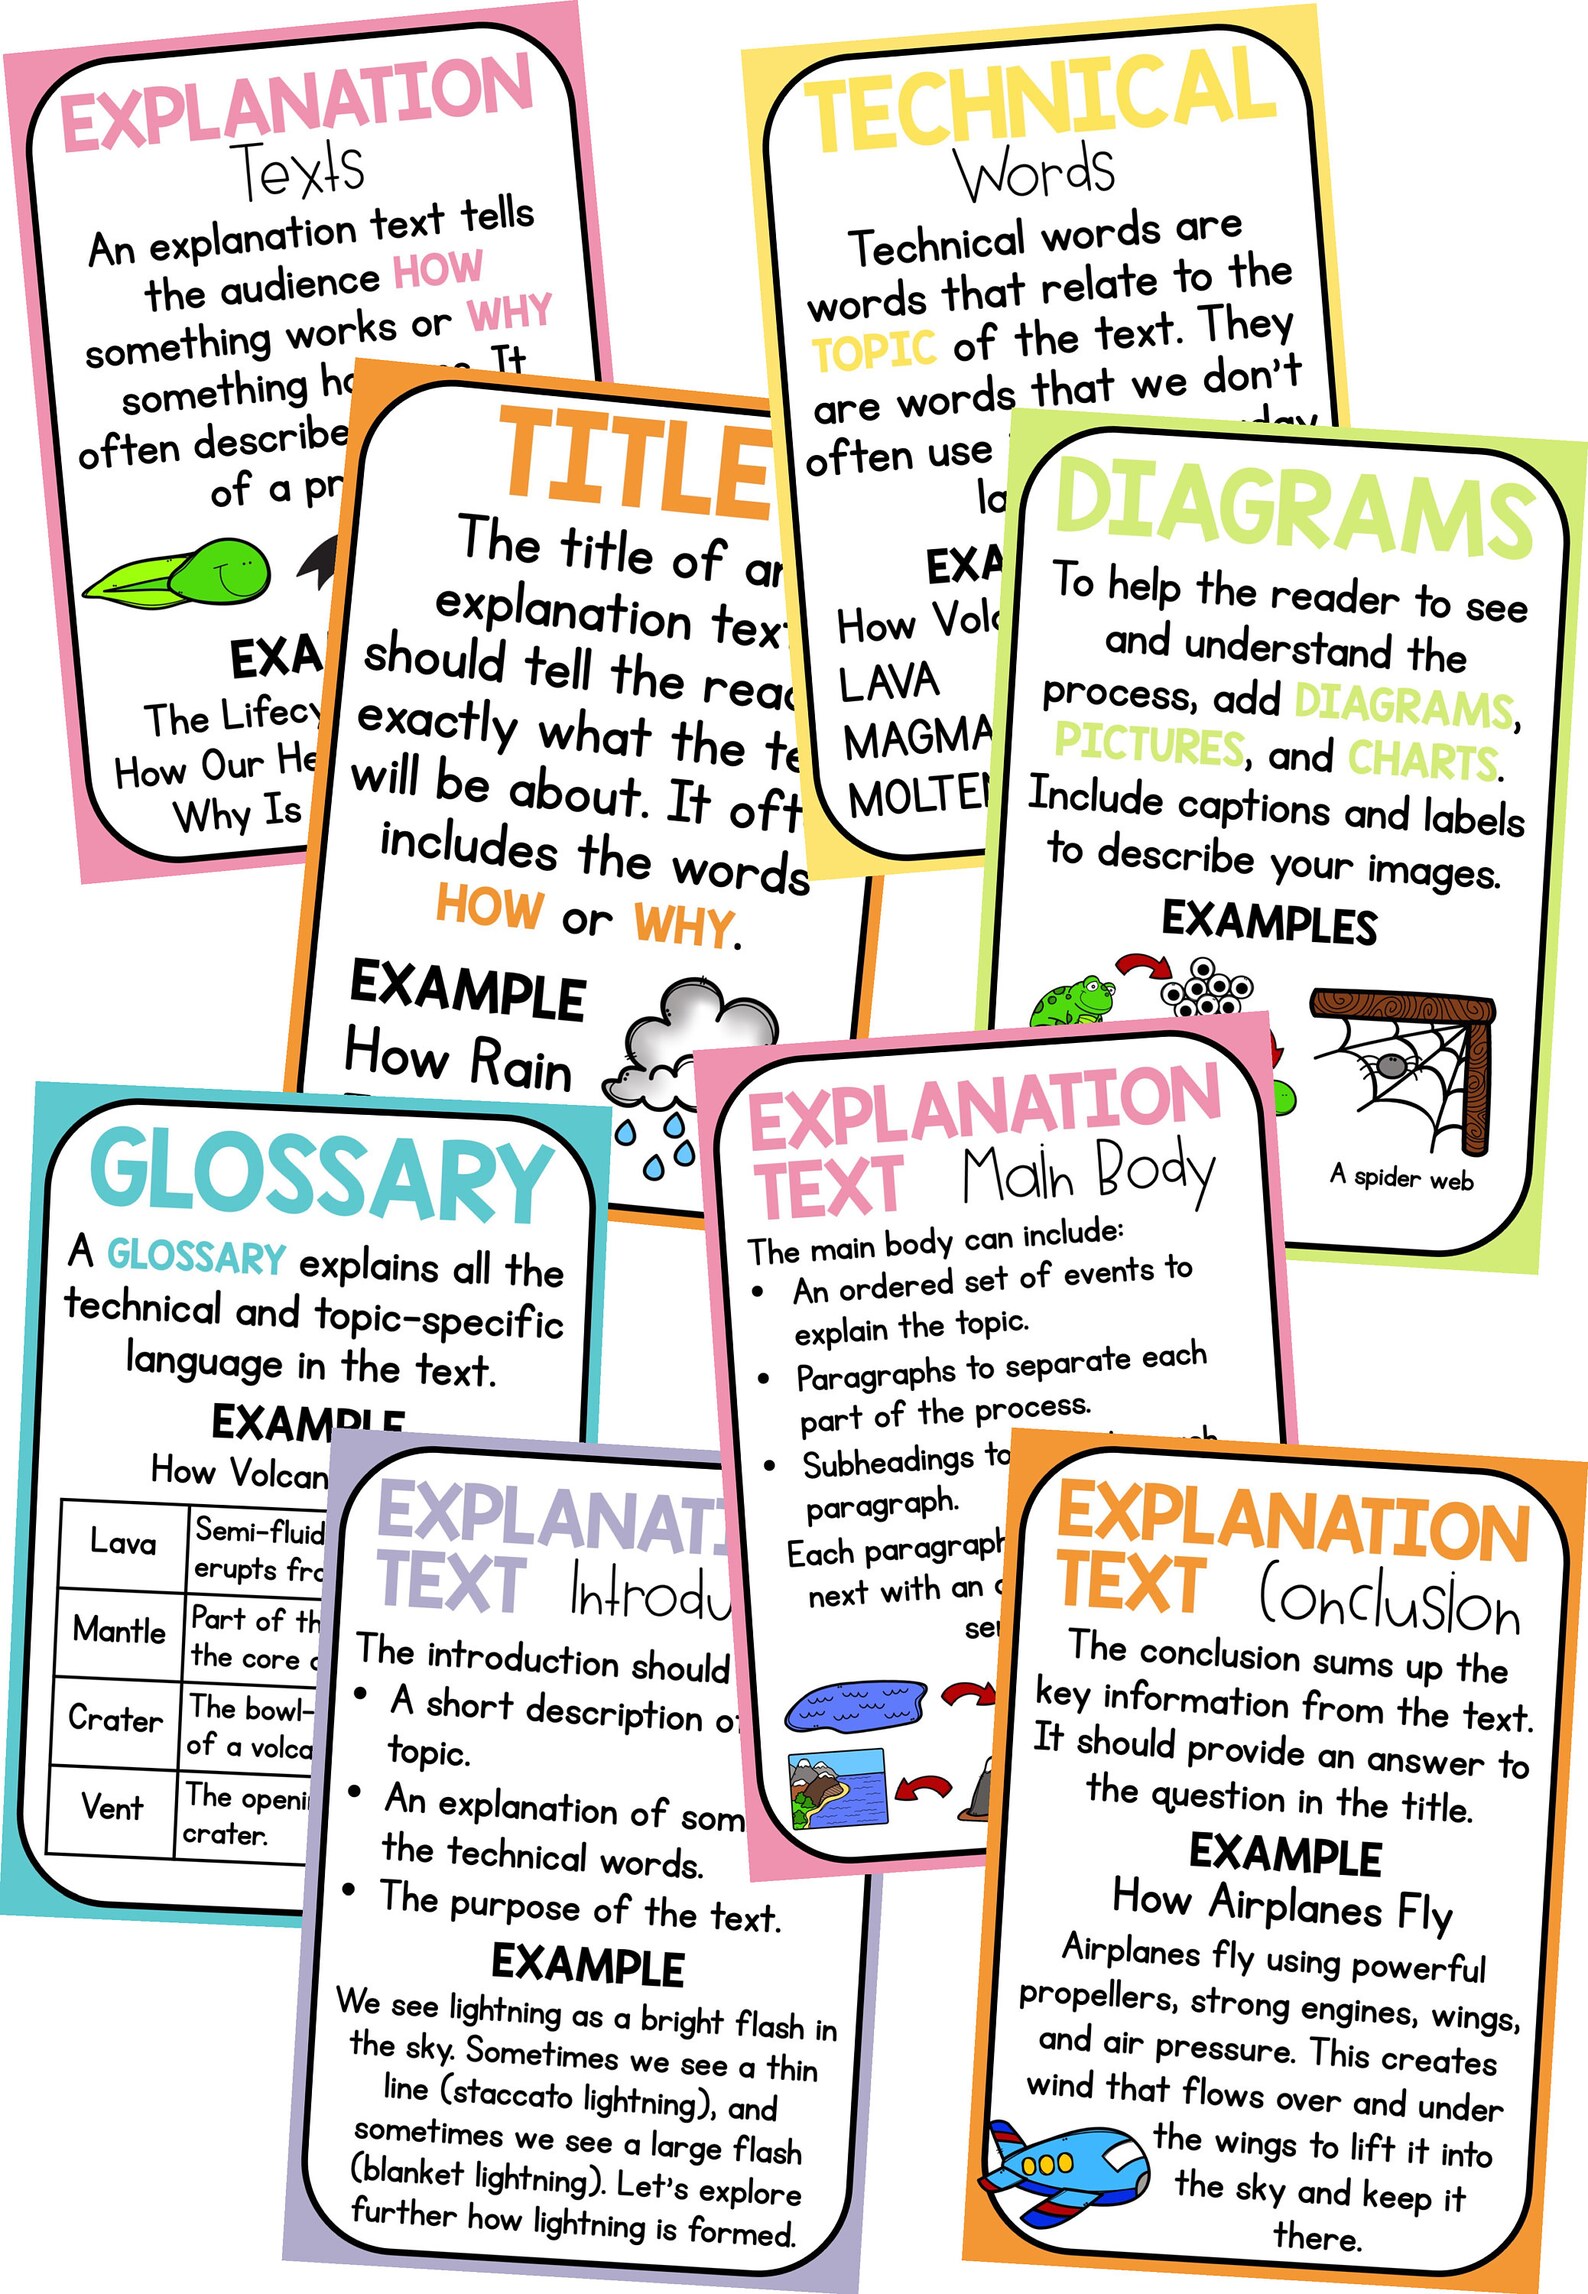 EXPLANATION
Texts
An explanation text tells
the audience HOW
something works or WHY
something It
often describe
of a
The
How Our
Why Is
TECHNICAL
Words
Technical words are
words that relate to the
TOPIC of the text. They
are words that we don't
often use
How
LAVA
MAGMA
TITLE
The title of
explanation
should tell the
exactly what the
will be about. It
includes the words
HOW or WHY.
EXAMPLE
How Rain
DIAGRAMS
To help the reader to see
and understand the
process, add DIAGRAMS,
PICTURES, and CHARTS.
Include captions and labels
to describe your images.
EXAMPLES
A spider web
GLOSSARY
A GLOSSARY explains all the
technical and topic-specific
language in the text.
EXAMPLE
How
Lava
Semi-fluid
erupts
Mantle
Part of
the core
Crater
The
of a
Vent
The
crater.
EXPLANATION
TEXT Main Body
The main body can include:
• An ordered set of events to
explain the topic.
• Paragraphs to separate each
part of the process.
• Subheadings
paragraph.
Each paragraph
next with an
EXPLANAT
TEXT
The introduction should
• A short description
topic.
• An explanation of
the technical words.
• The purpose of the text.
EXAMPLE
We see lightning as a bright flash in
the sky. Sometimes we see a thin
line (staccato lightning), and
sometimes we see a large flash
(blanket lightning). Let's explore
further how lightning is formed.
EXPLANATION
TEXT Conclusion
The conclusion sums up the
key information from the text.
It should provide an answer to
the question in the title.
EXAMPLE
How Airplanes Fly
Airplanes fly using powerful
propellers, strong engines, wings,
and air pressure. This creates
wind that flows over and under
the wings to lift it into
the sky and keep it
there.